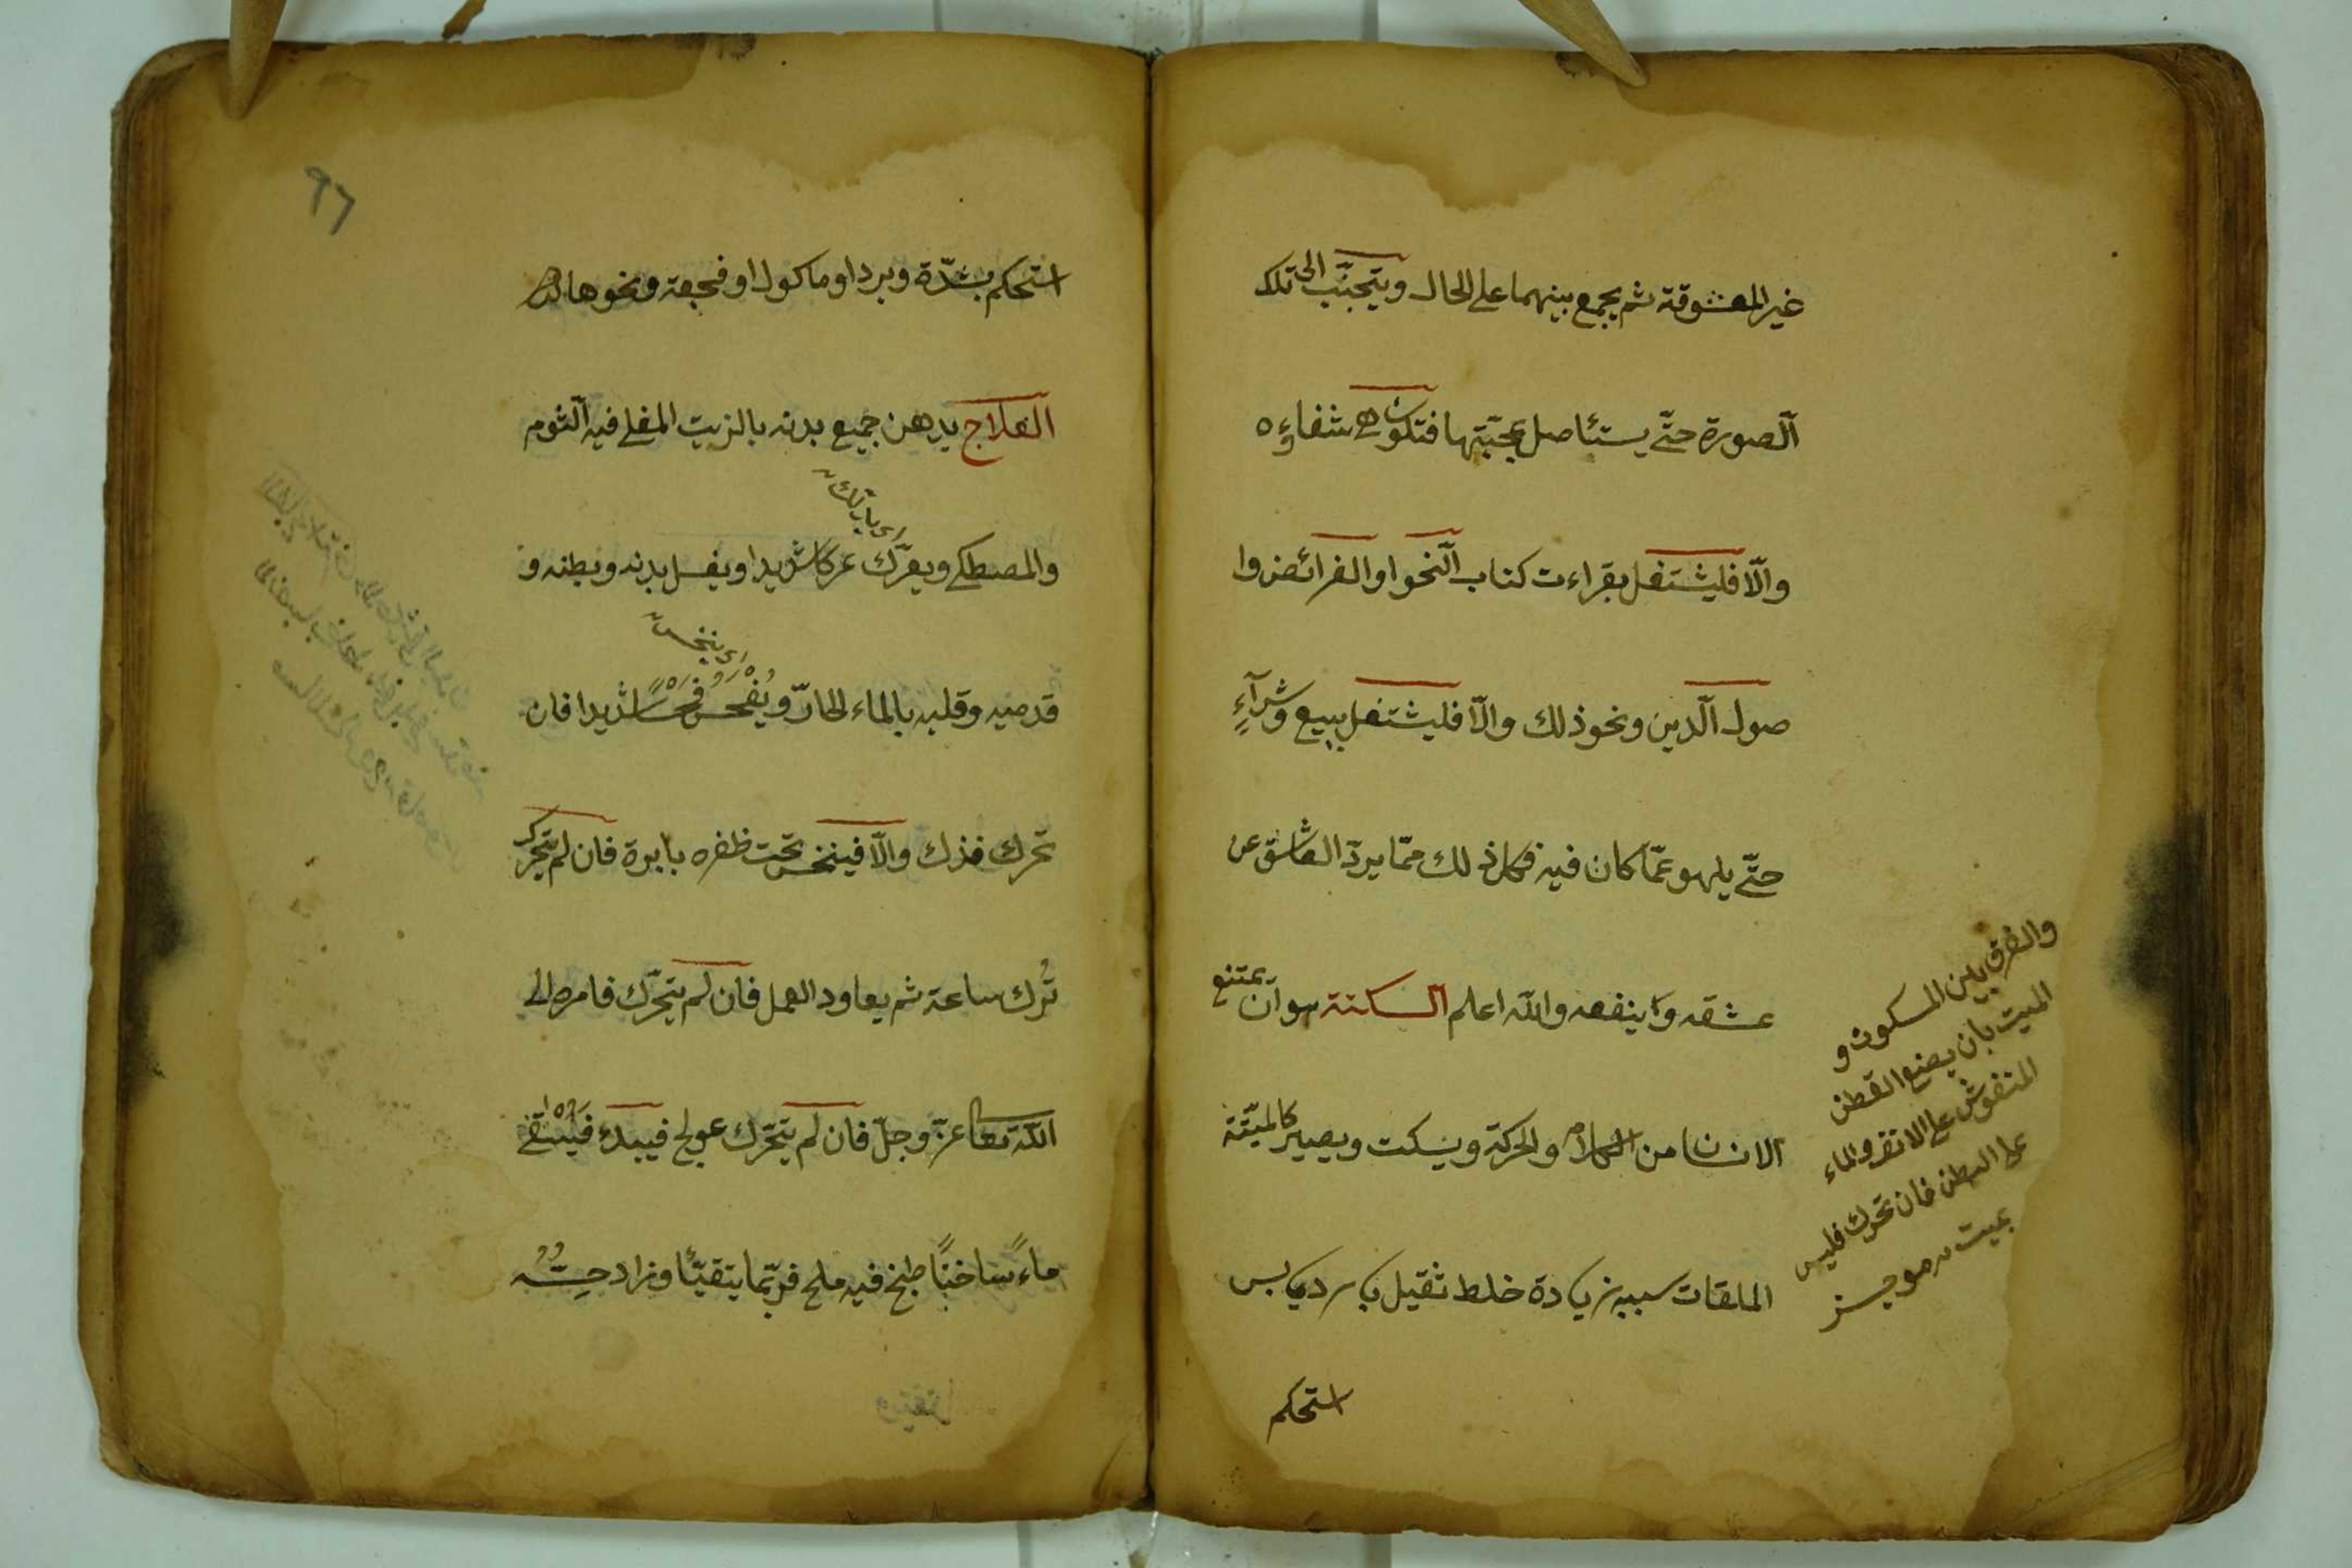 غير المعشوقة ثم يجمع بينهما على الحال ويتجنّب الى تلك
الصورة حتّى يستئاصل محبّتها فتكون هى شفاءه
والّا فليشتغل بقراءت كتاب النحو او الفرائض وا
صول الّدين ونحو ذلك والّا فليشتغل ببيع وشرآءٍ
حتّى يلهو عمّا كان فيه فكل ذلك ممّا يردّ العاشق عن
عشقه وينفعه والله اعلم السكتة هو ان يمتنع
الانسان من الكلام والحركة ويسكت ويصير كالميّتة
الملقات سببه زيادة خلط ثقيل بارد يابس
استحكم
والفرق بين المسكوت و
الميت بان يضع القطن
المنفوش على الانف والماء
على البطن فان تحرك فليس
بميت موجز
٩٦
استحكم بشدّة وبرد او ماكول او فجعة ونحوها
العلاج يدهن جميع بدنه بالزيت المغلى فيه الثوم
والمصطكى ويعرّك عركا شديدا ويغسل بدنه وبطنه و
اى يدلك
قدميه وقلبه بالماء الحارّ ويفحس فحسًا شديدا فان
اى ينخس
تحرك فذك والّا فينخس تحت ظفره بابرة فان لم يتحرك
تُرك ساعة ثم يعاود العمل فان لم يتحرّك فامره الى
الله تعا عزّ وجلّ فان لم يتحرّك عولج فيبدء فيسقى
ماءً ساخنًا طبخ فيه ملح فربّما يتقيّأ وزاد حسّه